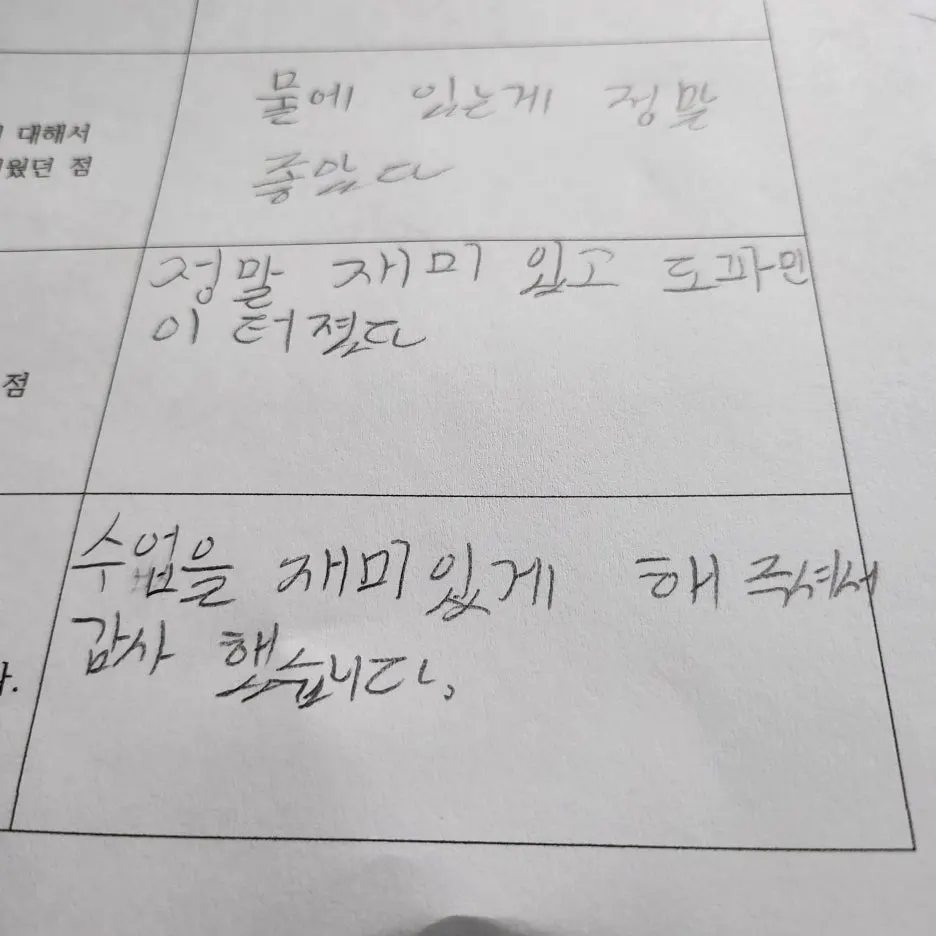 물에 있는게 정말
대해서
웠던 점
좋았다
정말 재미 있고 도파민
이 터졌다
점
수업을 재미있게 해 주셔서
감사 했습니다.